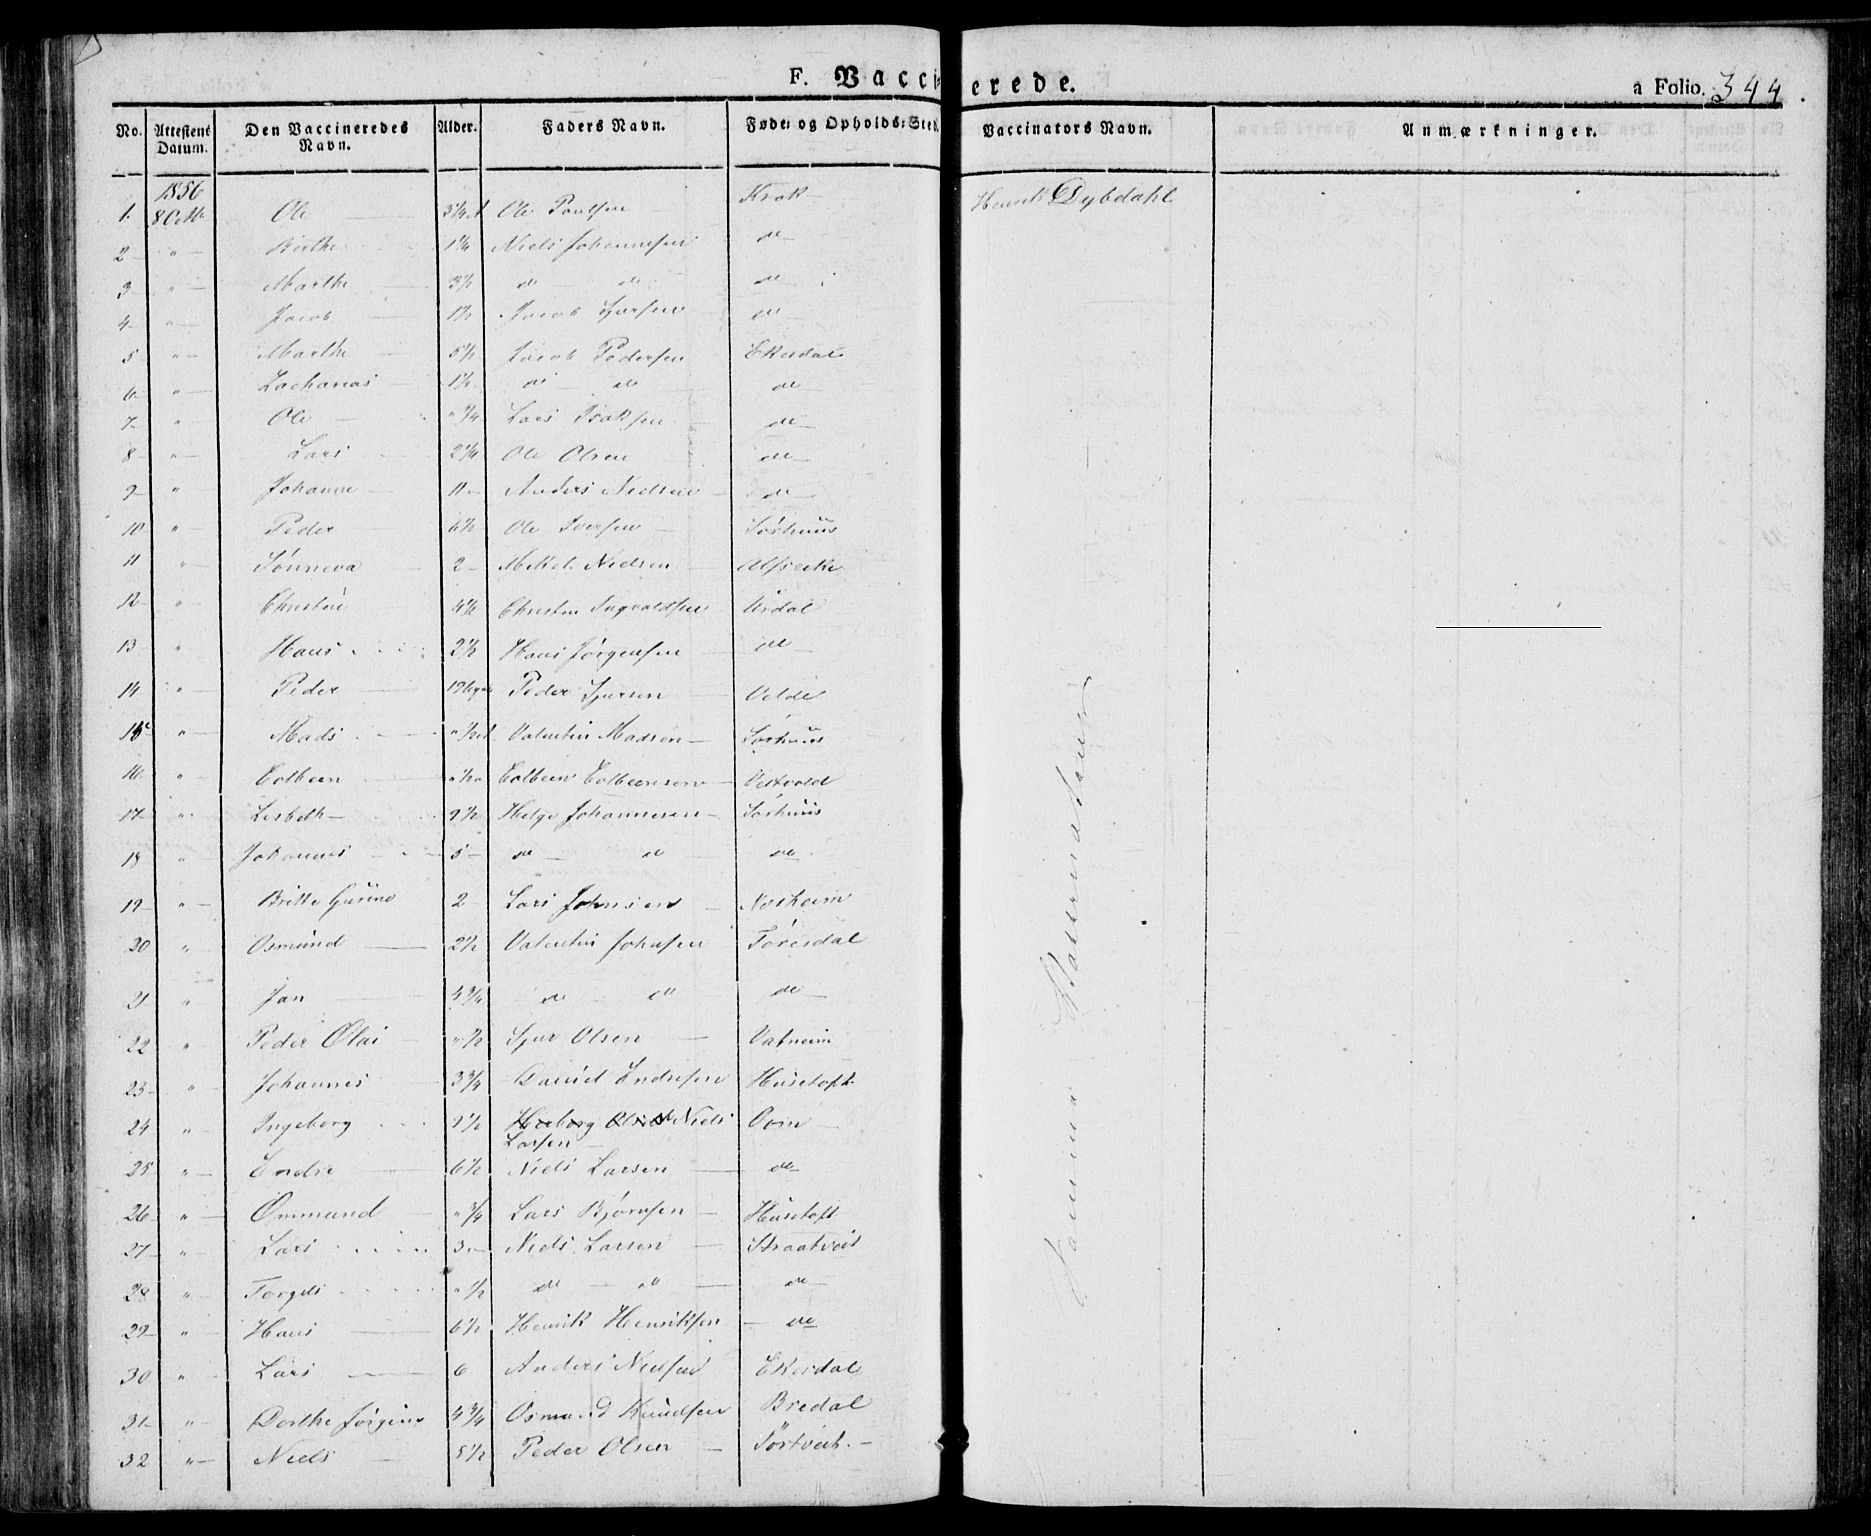 F. Vaccinerede.
a Folio. 344.
No. Attestens Datum. Den Vaccineredes Navn. Alder. Faders Navn. Føde- og Opholds-Sted. Vaccinators Navn. Anmærkninger.
1856
1. 8 Ole 3¼ Ole Poulsen Krok Henrik Dybdahl
2 " Birthe 1¼ Niels Johannesen do
3 " Marthe 3½ do do do
4 " Jacob 1½ Jacob Sjursen do
5 " Marthe 5½ Jacob Pedersen Ekesdal
6 " Zacharias 1½ do do do
7 " Ole " ¾ Lars Isaksen do
8 " Lars 2¼ Ole Olsen do
9 " Johanne 11 Anders Nielsen do
10 " Peder 6½ Ole Iversen Sørhuus
11 " Sønneva 2 Mikel Nielsen
12 " Christen 4½ Christen Ingvaldsen Årdal
13 " Hans 2½ Hans Jørgensen do
14 " Peder Peder Sjursen Velde
15 " Mads " ½ Valentin Madsen Sørhuus
16 " Colbeen " ½ Colbeen Colbeensen Vestvold
17 " Lisbeth 9½ Helge Johannesen Sørhuus
18 " Johannes 5 do do do
19 " Britte Gurine 2 Lars Johnsen Norheim
20 " Osmund 2½ Valentin Johnsen Førresdal
21 " Jan 4¾ do do do
22 " Peder Olai " ½ Sjur Olsen Vatneim
23 " Johannes 3¾ Daniel Endresen Husetoft
24 " Ingeborg 9½ Niels Oom
Larsen
25 " Endre 6½ Niels Larsen do
26 " Ommund " ¾ Lars Bjørnsen Husetoft
27 " Lars 3 Niels Larsen Straatveit
28 " Torgils " ½ do do do
29 " Hans 6½ Henrik Henriksen do
30 " Lars 6 Anders Nielsen Ekesdal
31 " Dorthe Jørgine 4¾ Osmund Knudsen Bredal
32 " Niels 5½ Peder Olsen Sørtveit